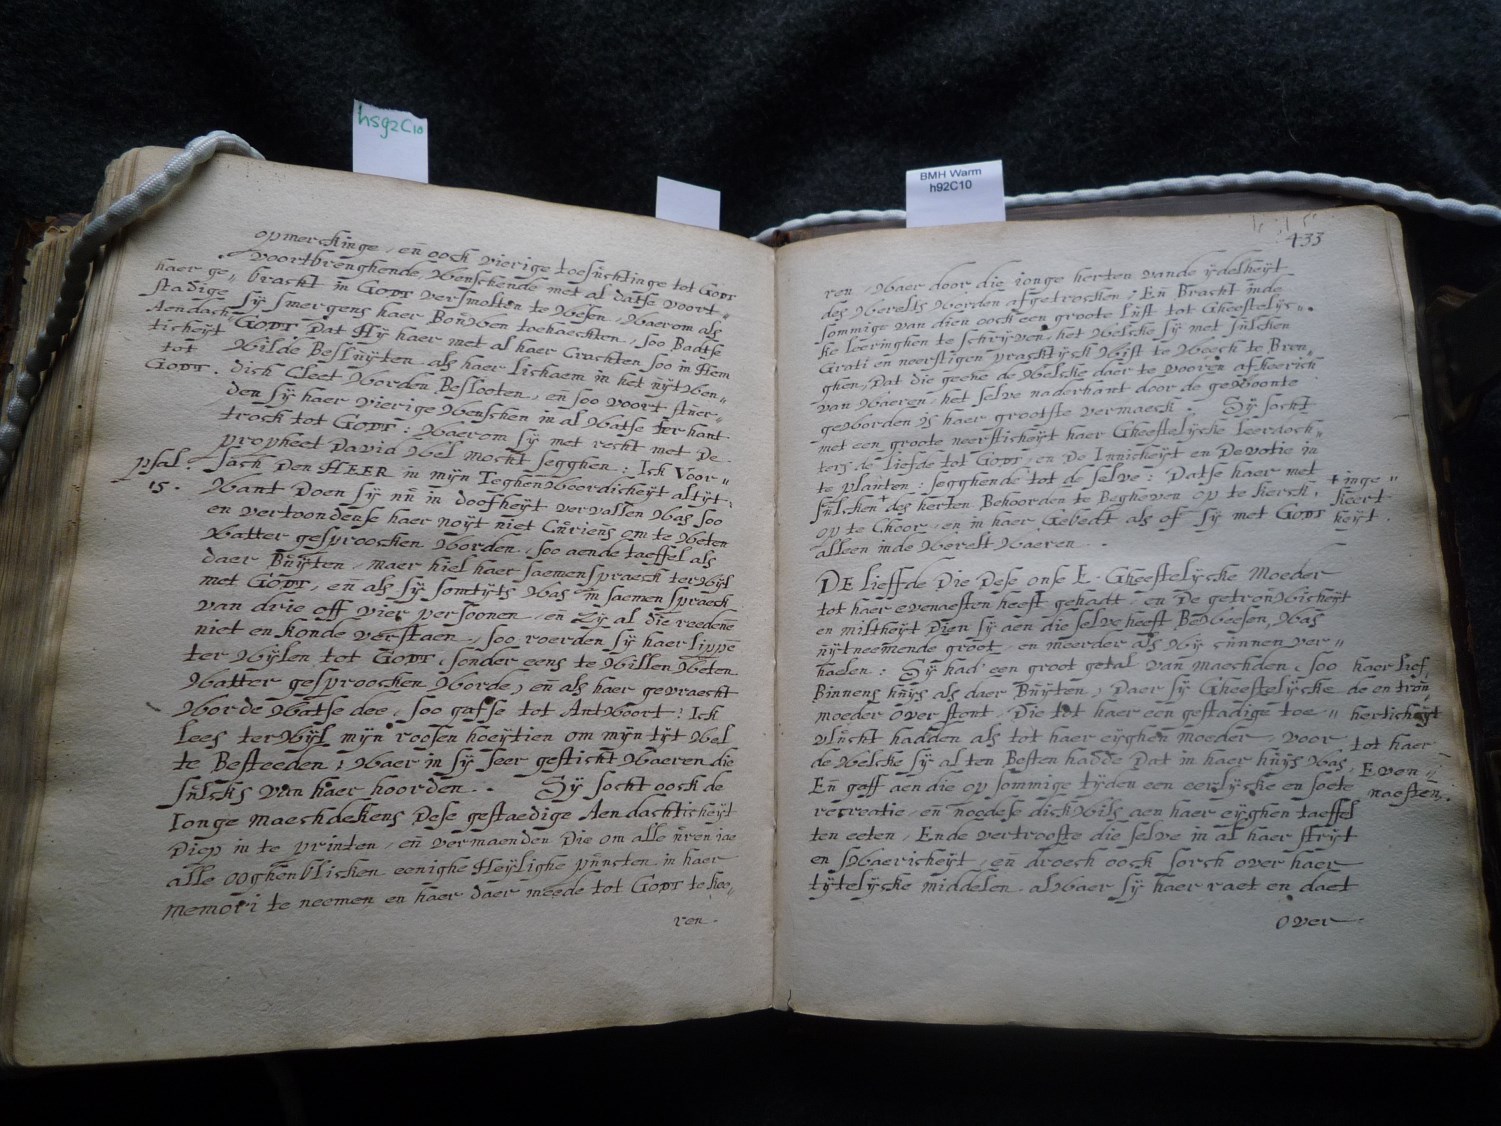 hs92C10
BMH Warm
h92C10
opmerckinge, en̄ oock vierige toesuchtinge tot Godt
voortbrenghende, Wenschende met al datse voort-
haer ge- bracht in Godt versmolten te Wesen, Waerom als
stadige sÿ smergens haer Bonwen toehaeckten, soo Badtse
Aendach- Godt Dat Hÿ haer met al haer Crachten soo in Hem
ticheÿt Wilde Besluÿten, als haer lichaem in het uÿtWen-
tot dich Cleet Worden Beslooten, en soo voort stuer-
Godt. den sÿ haer vierige Wenschen in al Watse ter hant
trock tot Godt: Waerom sÿ met recht met De
propheet David Wel mocht segghen: Ick Voor-
psal. sach Den HEER in mijn TeghenWoordicheÿt altÿt,
15. Want Doen sÿ nu in doofheÿt vervallen Was soo
en vertoondense haer noÿt niet Curieus om te Weten
Watter gesproocken Worden, soo aende taeffel als
daer Buÿten, maer hiel haer saemenspraeck terWÿl
met Godt, en̄ als sÿ somtÿts Was in saemenspraeck
van drie off vier persoonen, en Zÿ al die reedene
niet en konde verstaen, soo roerden sÿ haer lippē
terWÿlen tot Godt, sonder eens te Willen Weten
Watter gesproocken Worde, en̄ als haer gevraecht
Worde Watse dee, soo gafse tot AntWoort: Ick
Lees terWÿl mÿn roosen hoeÿtien om mÿn tÿt Wel
te Besteeden; Waer in sÿ seer gesticht Waeren die
sulcks van haer hoorden. Sÿ socht oock de
Ionge maechdekens Dese gestaedige Aendachticheÿt
Diep in te printen, en̄ vermaenden Die om alle uren iae
alle ooghenblicken eenighe Heÿlighe puncten in haer
memori te neemen en haer daer meede tot Godt te kee-
ren.
433
ren, Waer door die ionge herten vande ÿdelheÿt
des Werelts Worden afgetrocken; En̄ Bracht inde
sommige van dien oock een groote lust tot Gheestelÿc-
ke leeringhen te schrÿven, het Welcke sÿ met sulcken
Grati en neerstigen practÿck Wist te Weech te Bren-
ghen, Dat die geene de Welcke daer te vooren afkeerich
van Waeren, het selve naderhant door de geWoonte
geWorden is haer grootste vermaeck. Sÿ socht
met een groote neersticheÿt haer Gheestelÿcke leerdoch-
ters de liefde tot Godt, en De Innicheÿt en Devotie in
te planten: segghende tot de selve: Datse haer met
sulcken + des herten Behoorden te Begheven op te kerck, + inge-
op te Choor, en in haer Gebedt als of sÿ met Godt keert
alleen inde Werelt Waeren. heÿt.
DE Lieffde Die Dese onse E. Gheestelÿcke Moeder
tot haer evenaesten heeft gehadt, en De getrouWicheÿt
en miltheÿt Dien sÿ aen die selve heeft BeWeesen, Was
uÿtneemende groot, en meerder als Wÿ cunnen ver-
haelen: Sÿ had een groot getal van maechden, soo haer lief
Binnens huÿs als daer Buÿten, Daer sÿ Gheestelÿcke de en trou
moeder over stont, Die tot haer een gestadige toe- herticheÿt
vlucht hadden als tot haer eÿghen moeder, voor tot haer
de Welcke sÿ al ten Besten hadde Dat in haer huÿs Was, Even-
En̄ gaff aen die op sommige tÿden een eerlÿcke en soete naesten.
recreatie, en̄ noodese dickWils aen haer eÿghen taeffel
ten eeten, Ende vertrooste die selve in al haer strÿt
en sWaericheÿt, en̄ droech oock sorch over haer
tÿtelÿcke middelen, alWaer sÿ haer raet en daet
over